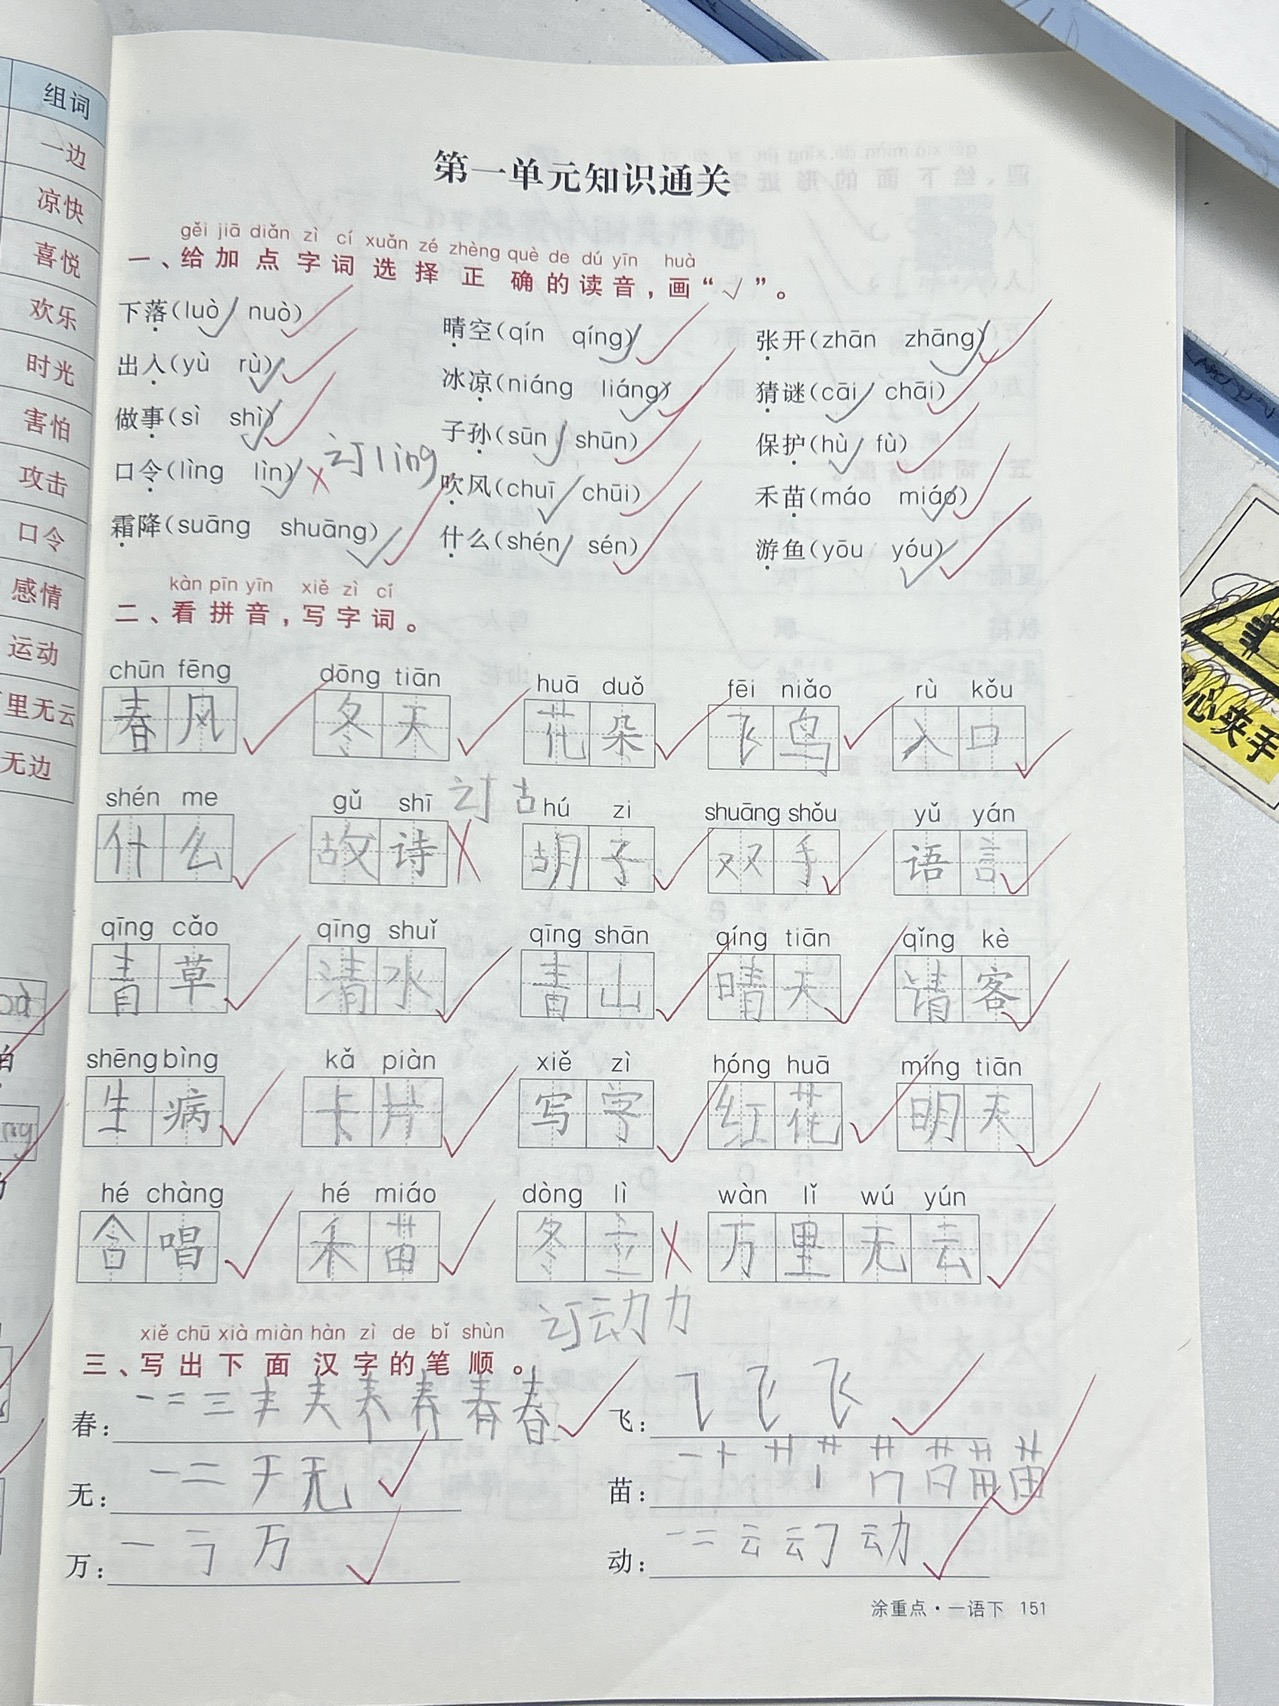 组词
一边
凉快
喜悦
欢乐
时光
害怕
攻击
口令
感情
运动
里无云
无边
第一单元知识通关
gěi jiā diǎn zì cí xuǎn zé zhèng què de dú yīn huà
一、给加点字词选择正确的读音，画“√”。
下落(luò√ nuò) 晴空(qín qíng)√ 张开(zhān zhāng)√
出入(yù rù)√ 冰凉(niáng liáng)√ 猜谜(cāi√ chāi)
做事(sì shì)√ 子孙(sūn√ shūn) 保护(hù√ fù)
口令(lìng lìn)√ × 订lìng 吹风(chuī√ chūi) 禾苗(máo miáo)√
霜降(suāng shuāng)√ 什么(shén√ sén) 游鱼(yōu yóu)√
kàn pīn yīn xiě zì cí
二、看拼音，写字词。
chūn fēng dōng tiān huā duǒ fēi niǎo rù kǒu
春风 冬天 花朵 飞鸟 入口
shén me gǔ shī 订古 hú zi shuāng shǒu yǔ yán
什么 故诗 × 胡子 双手 语言
qīng cǎo qīng shuǐ qīng shān qíng tiān qǐng kè
青草 清水 青山 晴天 请客
shēng bìng kǎ piàn xiě zì hóng huā míng tiān
生病 卡片 写字 红花 明天
hé chàng hé miáo dòng lì wàn lǐ wú yún
合唱 禾苗 冬立 × 万里无云
订动力
xiě chū xià miàn hàn zì de bǐ shùn
三、写出下面汉字的笔顺。
春: 飞:
无: 苗:
万: 动:
涂重点·一语下 151
心夹手